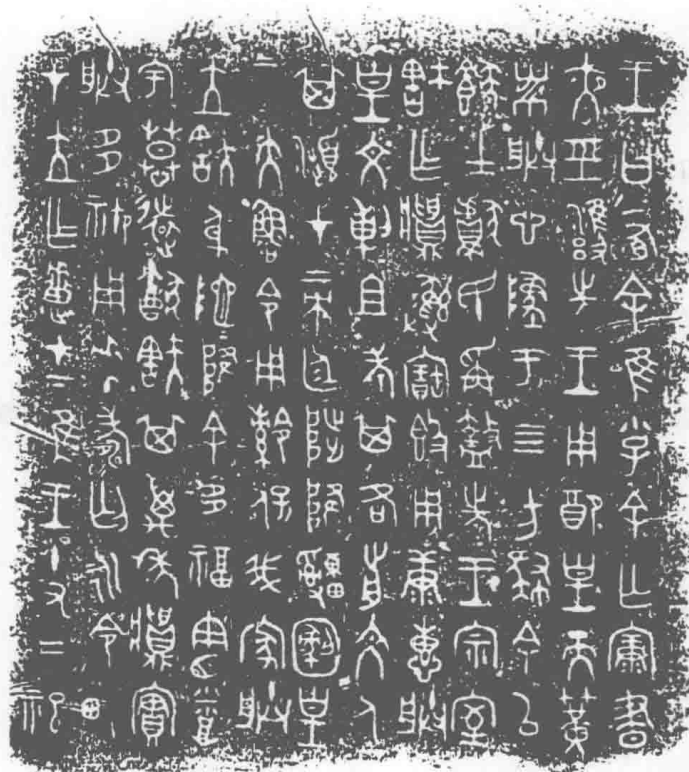 王曰有余隹小子余亡康晝
夜巠雝先王用配皇天簧
黹朕心墜于四方肆余以
餕士獻民爯盩先王宗室
㝬乍𩰫彝寶簋用康惠朕
皇文剌且考其各前文人
其瀕才帝廷陟降申恪皇
帝大魯令用令保我家朕
立㝬身阤＝降余多福憲烝
宇慕遠猷㝬其萬年𩰫實
朕多禦用𠦪壽匄永令畯
才立乍疐才下隹王十又二祀